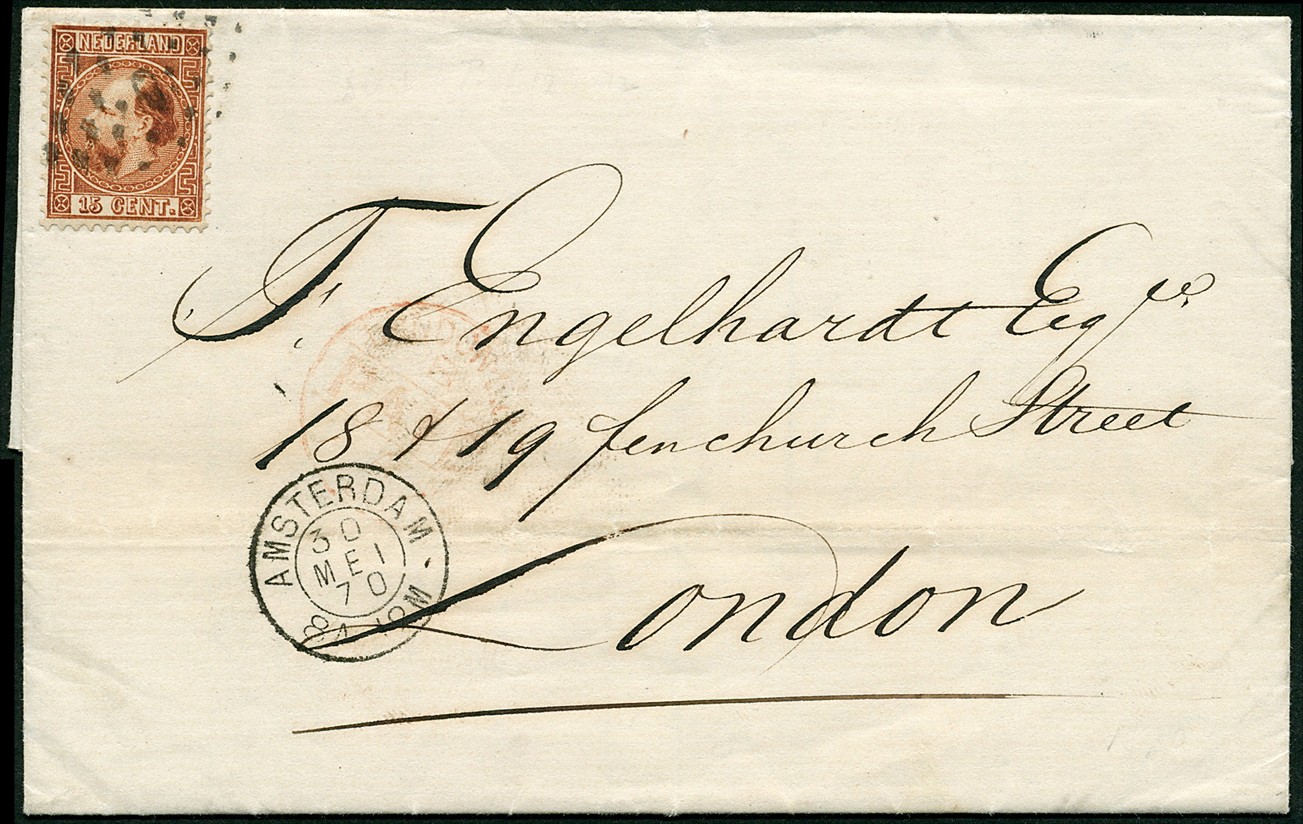 NEDERLAND
15 CENT.
F. Engelhardt Esq.re
18 & 19 fenchurch Street
AMSTERDAM
30
MEI
70
London